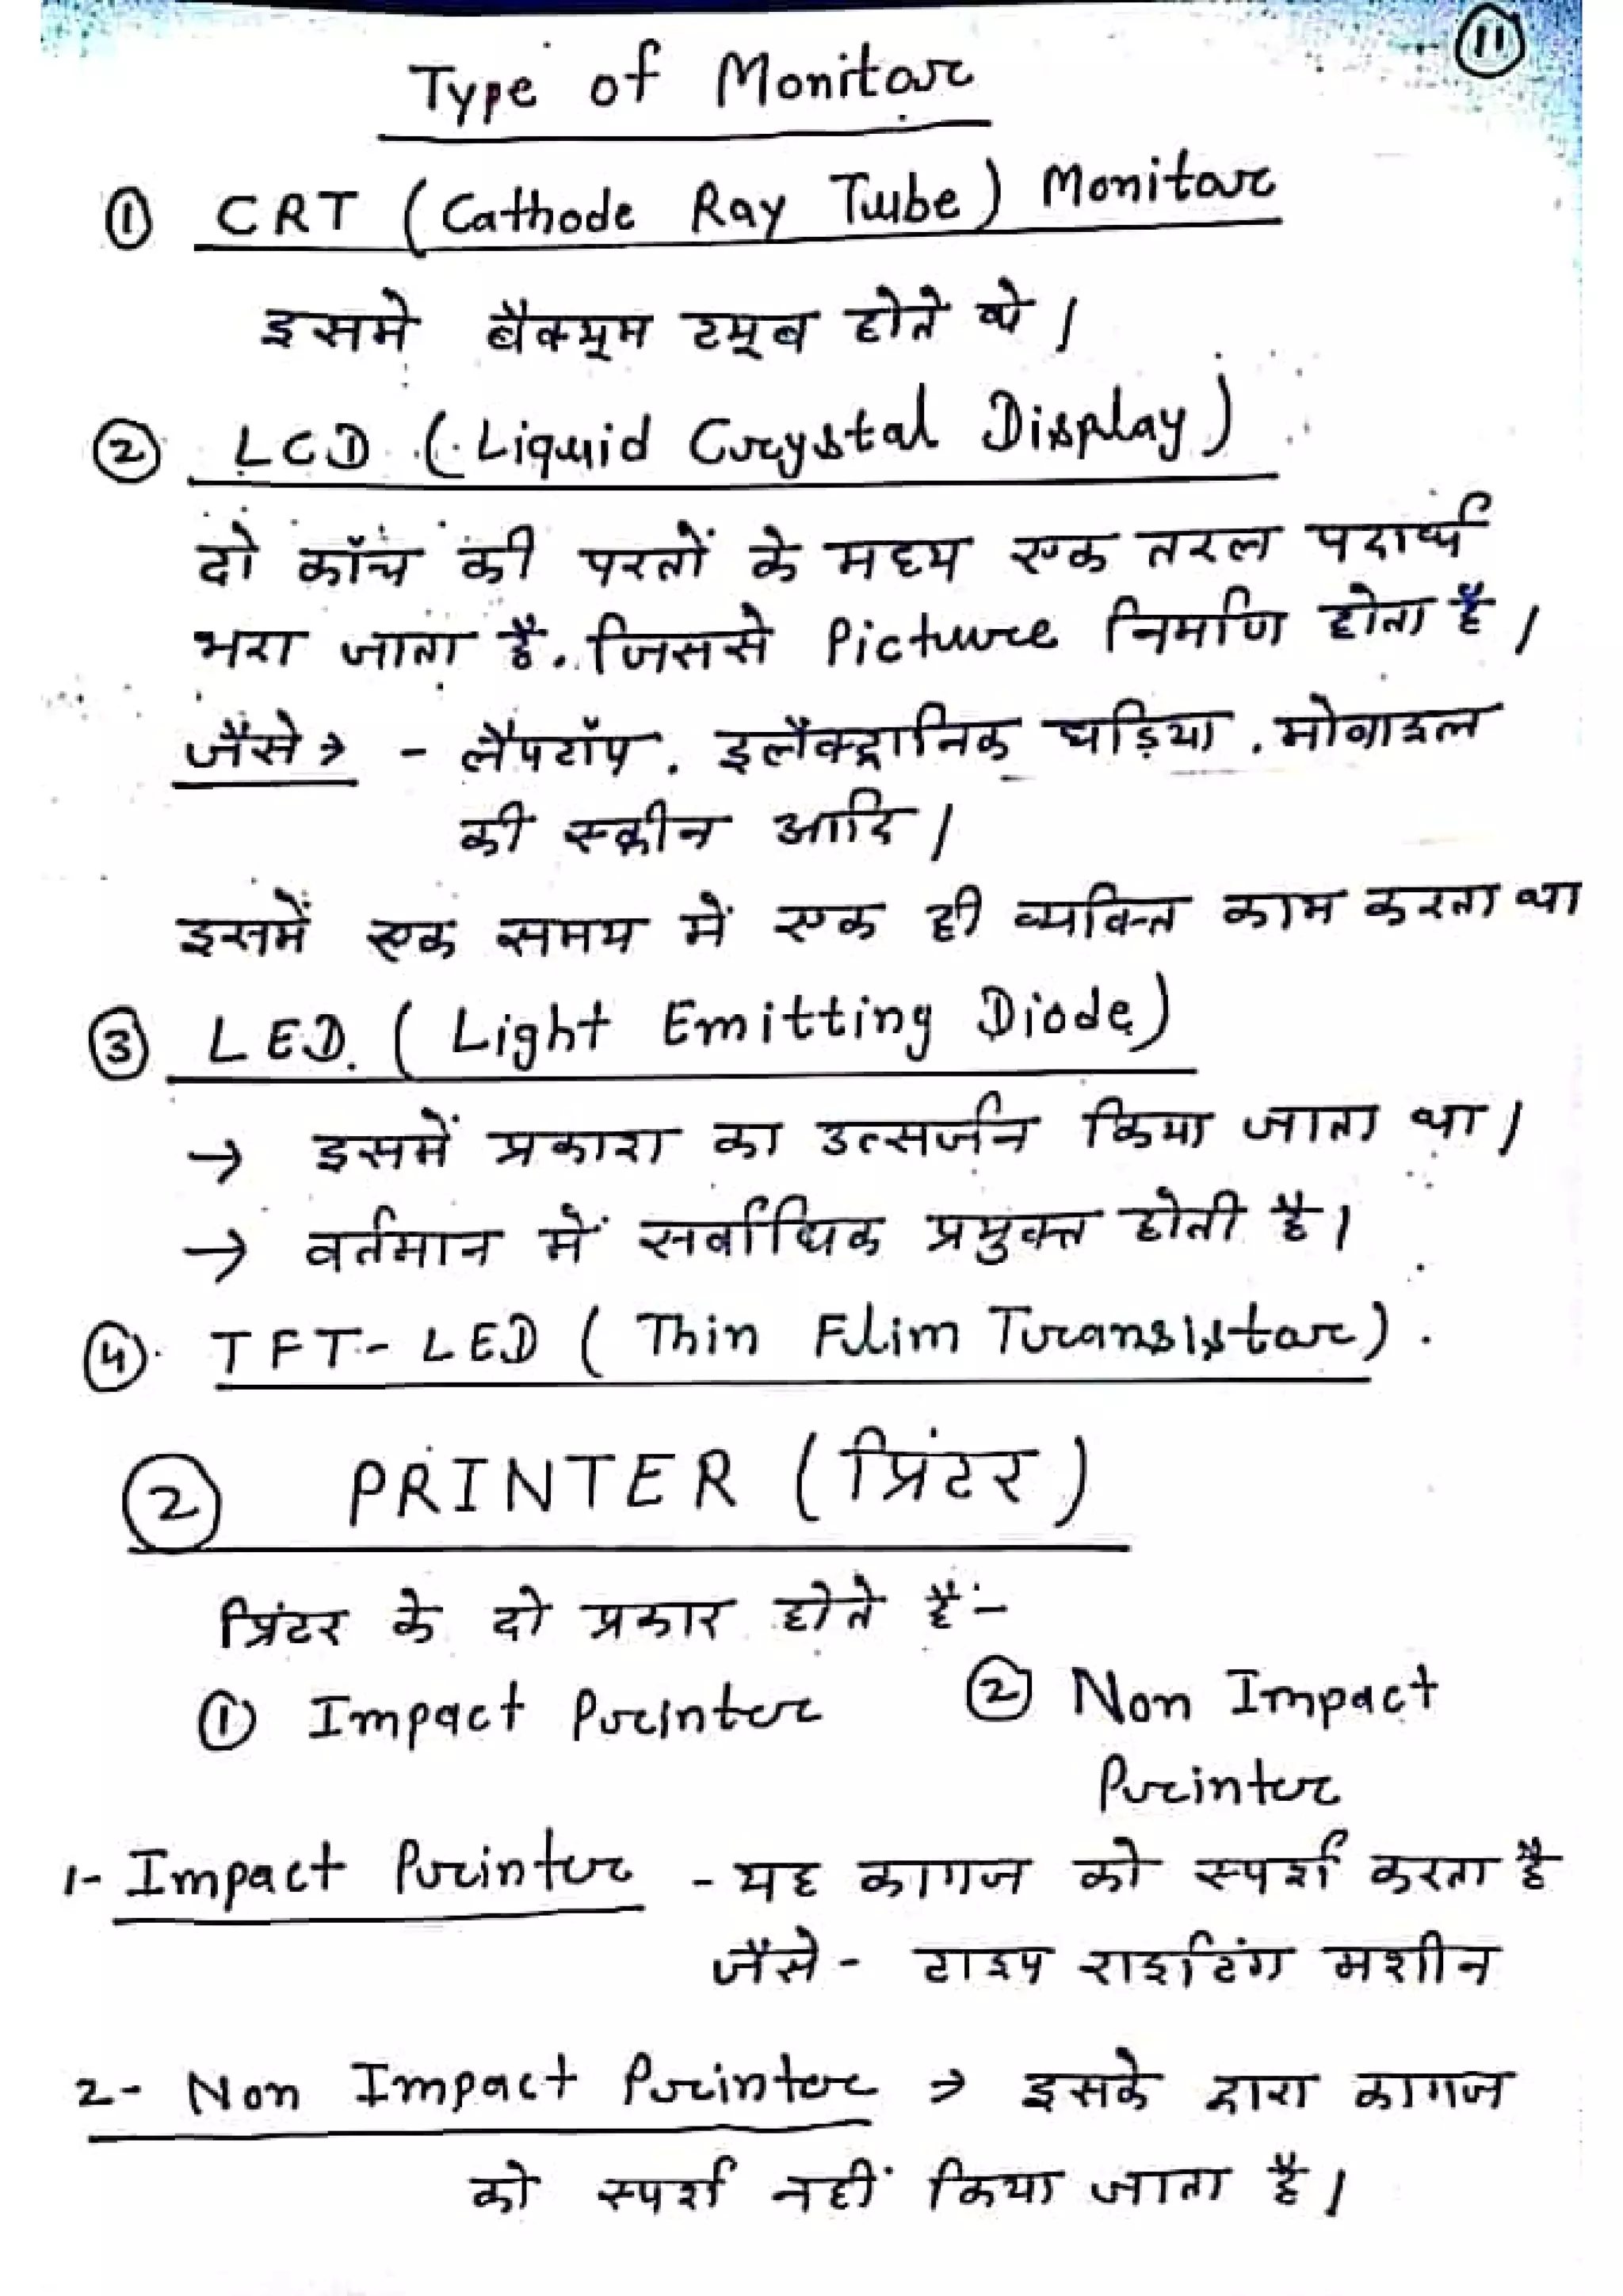 11
Type of Monitor
① CRT (Cathode Ray Tube) Monitor
इसमे बैक्यूम ट्यूब होते थे।
② LCD (Liquid Crystal Display)
दो काँच की परतों के मध्य एक तरल पदार्थ
भरा जाता है. जिससे Picture निर्माण होता है।
जैंसे → - लैपटॉप, इलैक्ट्रानिक घड़िया, मोबाइल
की स्क्रीन आदि।
इसमें एक समय में एक ही व्यक्ति काम करता था
③ LED. (Light Emitting Diode)
→ इसमें प्रकाश का उत्सर्जन किया जाता था।
→ वर्तमान में सर्वाधिक प्रयुक्त होती है।
④. TFT- LED (Thin Flim Transistor).
② PRINTER (प्रिंटर)
प्रिंटर के दो प्रकार होते हैं:-
① Impact Printer ② Non Impact
Printer
1- Impact Printer - यह कागज को स्पर्श करता है
जैंसे - टाइप राइटिंग मशीन
2- Non Impact Printer → इसके द्वारा कागज
को स्पर्श नहीं किया जाता है।